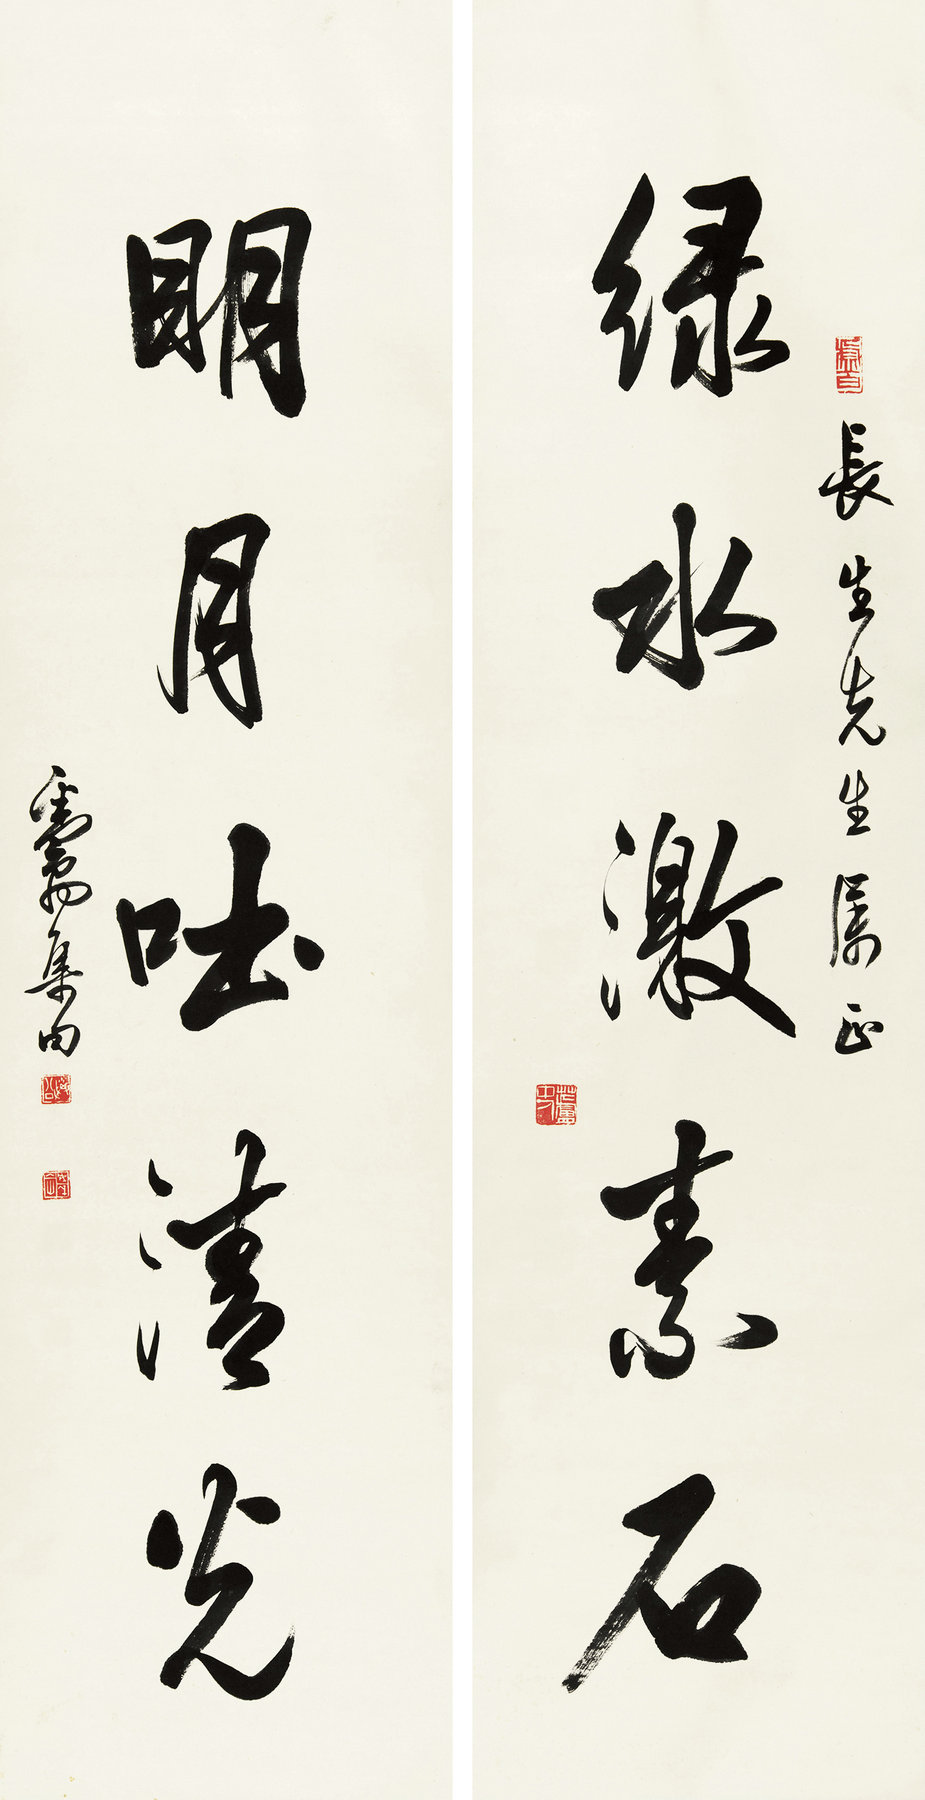 長生先生属正
綠水激素石
明月吐清光
集句